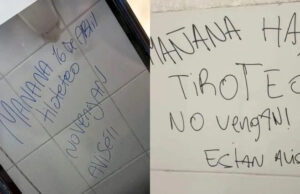 MAÑANA 16 DE ABRIL
tiroteo
NO VENGAN
AVISE!!
MAÑANA HA
TIROTEO
NO VENGAN!
ESTAN AVIS